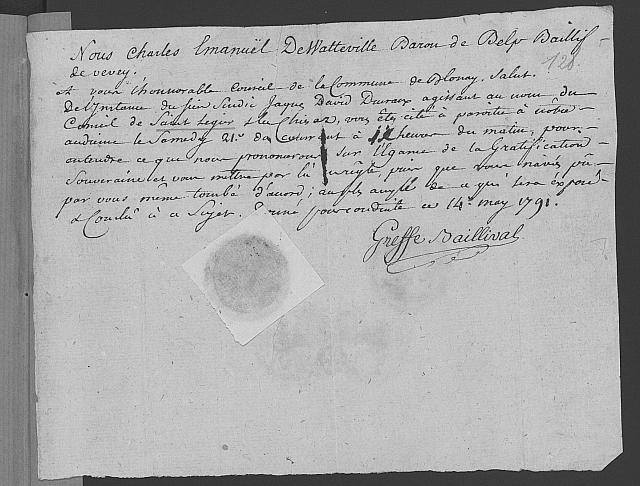 Nous Charles Emanuël DeWatteville Baron de Belp Baillif
de vevey.
128.
A vous l'honnorable Conseil de la Commune de Blonay. Salut.
De l'Instance du sieur Sindic Jaques David Ducraux agissant au nom du
Conseil de Saint Legier & La Chiesaz, vous êtes cité à paroitre à nôtre
audience le Samedy 21.e du courrant à heures du matin, pour
entendre ce que nous prononcerons sur l'Egance de la Gratification
Souveraine et vous mettre par là en règle puis que vous n'avez pu
par vous même tombé d'acord; de ce qui sera exposé
& Conclu à ce Sujet. Donné pour conduite ce 14.e may 1791.
Greffe Baillival